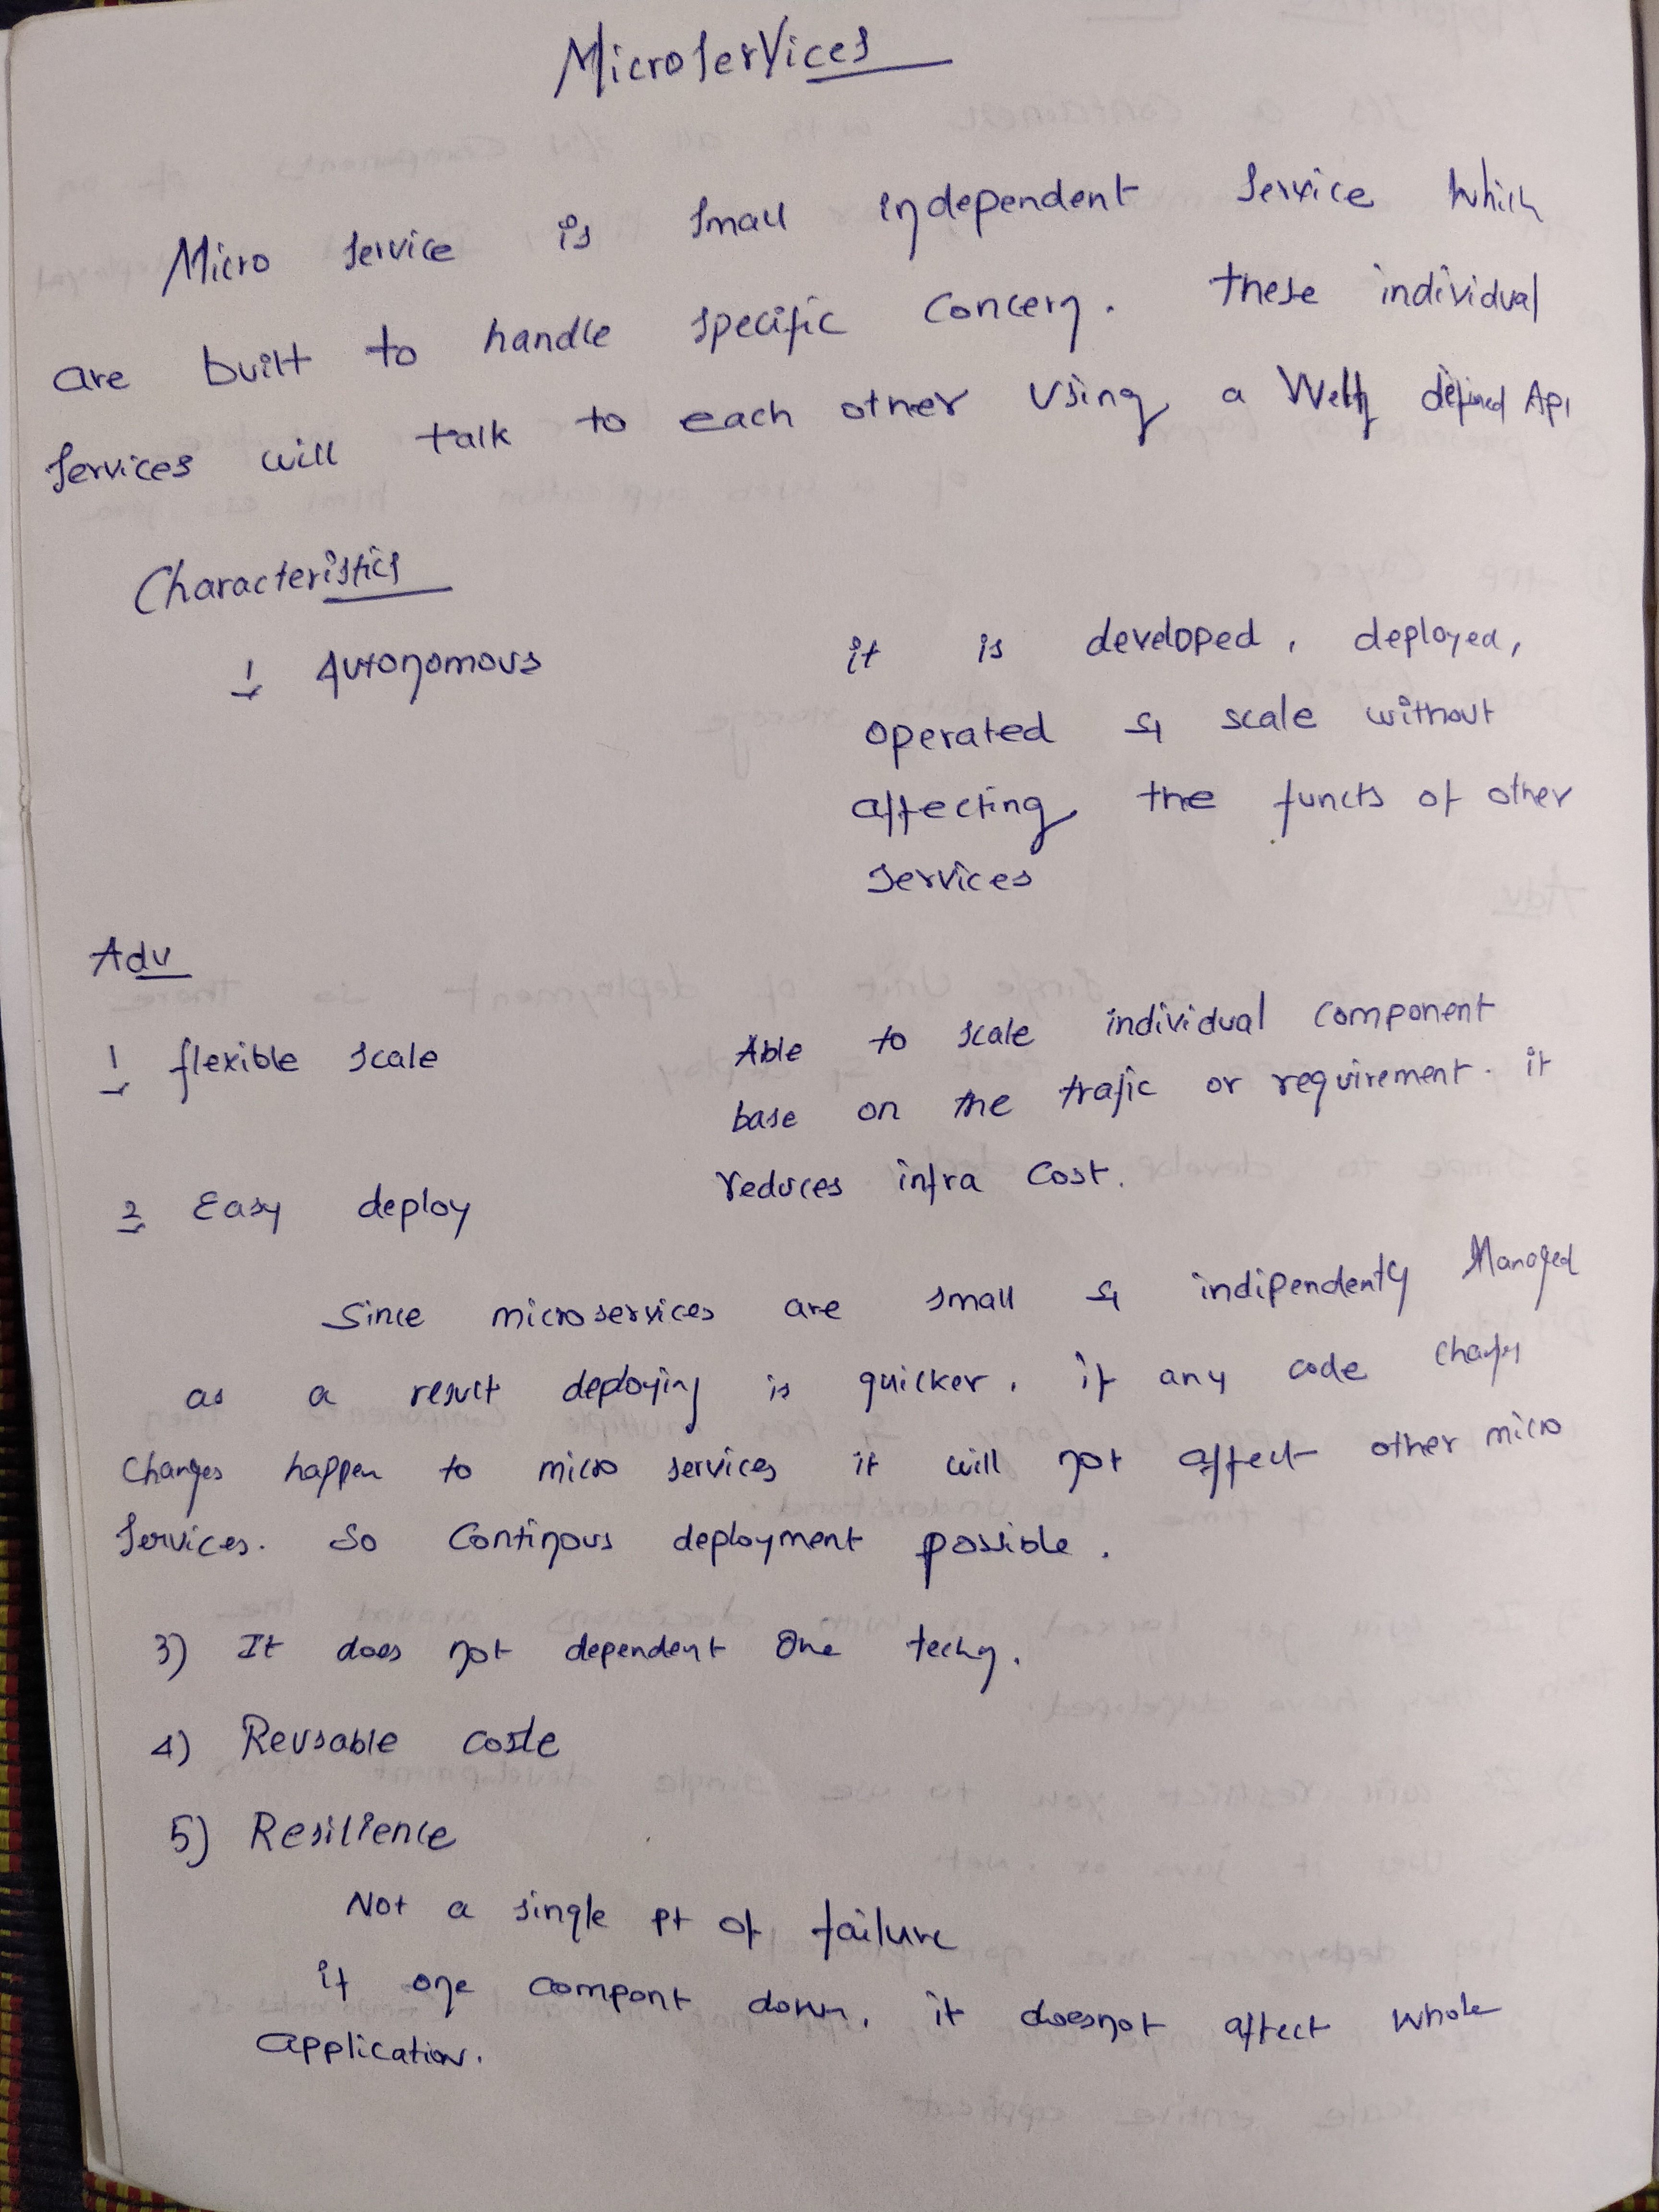 Microservices
Micro service is small independent service which
are built to handle specific concern. These individual
services will talk to each other using a well defined Api
Characteristics
1 Autonomous
it is developed, deployed,
operated & scale without
affecting the functs of other
services
Adv
1 flexible scale
Able to scale individual component
base on the trafic or requirement. it
reduces infra cost.
2 Easy deploy
Since microservices are small & indipendently Managed
as a result deploying is quicker. if any code changes
changes happen to micro services it will not affect other micro
services. So continous deployment possible.
3) It does not dependent one techn.
4) Reusable code
5) Resilience
Not a single pt of failure
if one compont down, it doesnot affect whole
application.